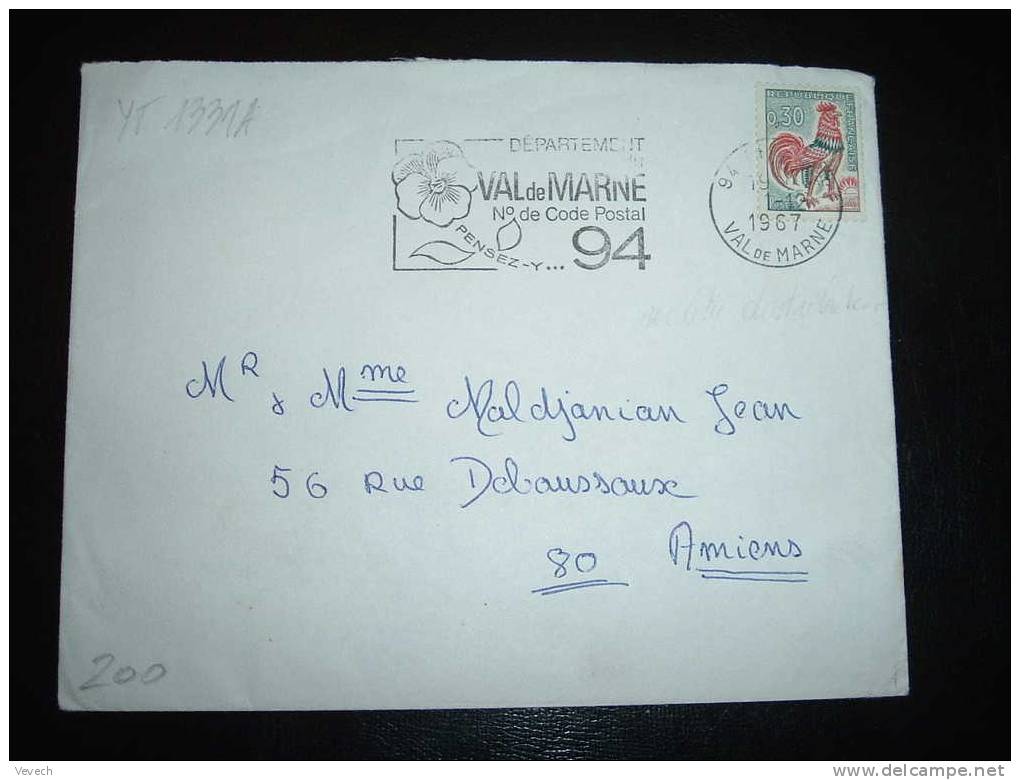 YT 1331A
REPUBLIQUE FRANÇAISE
0,30
DÉPARTEMENT
VAL de MARNE
No de Code Postal
PENSEZ-Y... 94
94
1967
VAL DE MARNE
MR & Mme Naldjanian Jean
56 Rue Debaussaux
80 Amiens
200
Vevech
delcampe.net